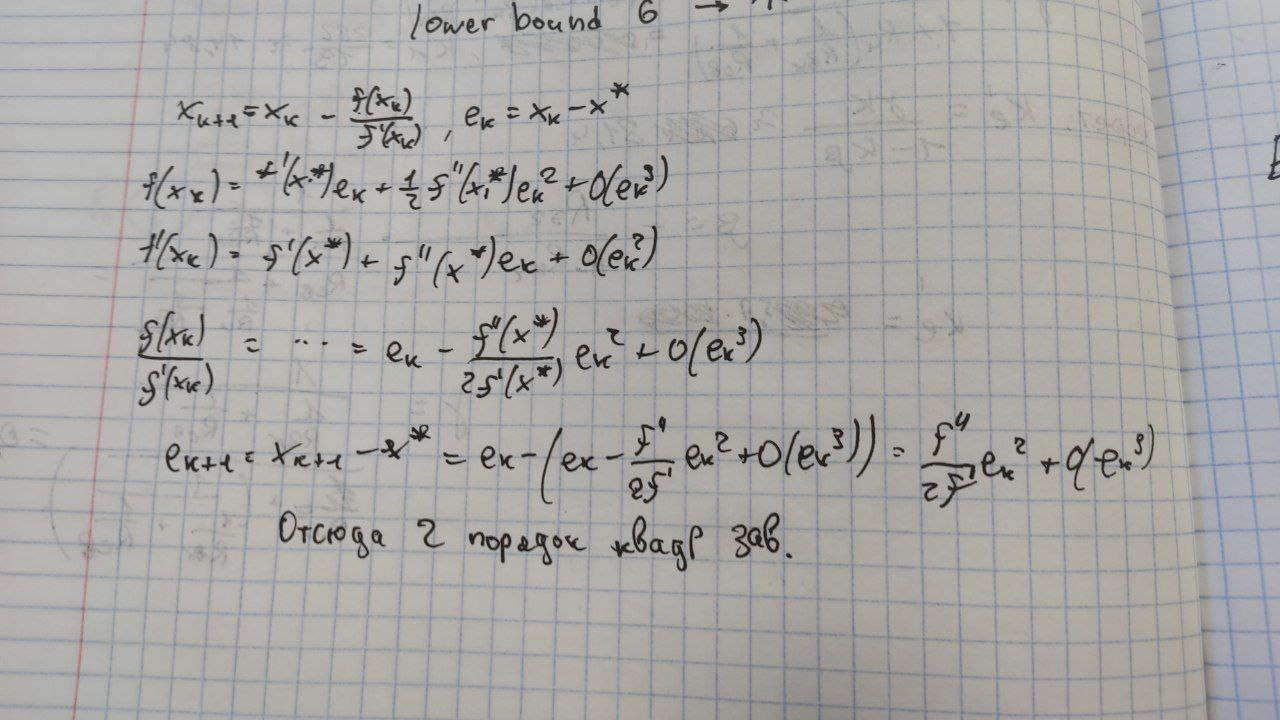 lower bound 6 →
x_{k+1} = x_k - \frac{f(x_k)}{f'(x_k)}, e_k = x_k - x^*
f(x_k) = f'(x^*)e_k + \frac{1}{2} f''(x^*)e_k^2 + O(e_k^3)
f'(x_k) = f'(x^*) + f''(x^*)e_k + O(e_k^2)
\frac{f(x_k)}{f'(x_k)} = ... = e_k - \frac{f''(x^*)}{2f'(x^*)} e_k^2 + O(e_k^3)
e_{k+1} = x_{k+1} - x^* = e_k - (e_k - \frac{f''}{2f'} e_k^2 + O(e_k^3)) = \frac{f''}{2f'} e_k^2 + O(e_k^3)
Отсюда 2 порядок квадр зав.